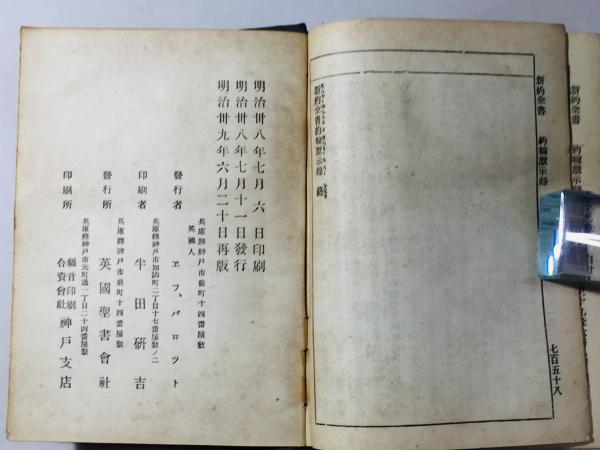 新約全書 約翰默示錄
七百五十八
新約全書約翰默示錄 終
明治卅八年七月六日印刷
明治卅八年七月十一日發行
明治卅九年六月二十日再版
兵庫縣神戸市前町十四番屋敷
英國人
發行者 エフ、パロット
兵庫縣神戸市加納町二丁目十七番屋敷ノ二
印刷者 牛田研吉
兵庫縣神戸市前町十四番屋敷
發行所 英國聖書會社
兵庫縣神戸市元町通一丁目二十四番屋敷
印刷所 福音印刷合資會社 神戸支店